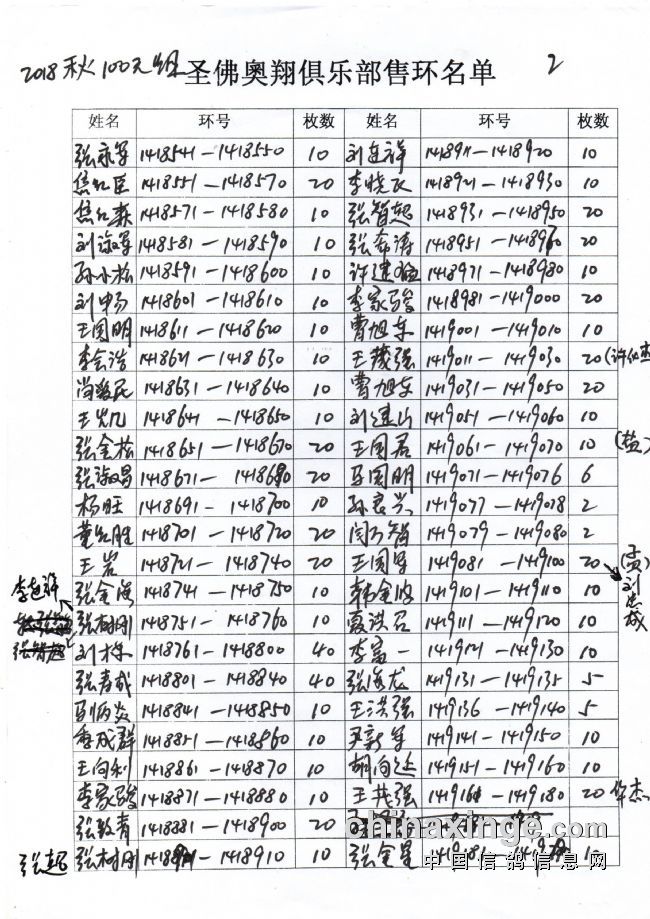 2018秋100元组 圣佛奥翔俱乐部售环名单 2
姓名 环号 枚数 姓名 环号 枚数
张 1418541—1418550 10 刘连祥 1418911—1418920 10
焦红臣 1418551—1418570 20 李晓 1418921—1418930 10
焦红森 1418571—1418580 10 张智超 1418931—1418950 20
刘 1418581—1418590 10 张春涛 1418951—1418960 20
孙小松 1418591—1418600 10 许建 1418971—1418980 10
刘申易 1418601—1418610 10 李家骏 1418981—1419000 20
王国明 1418611—1418620 10 曹旭东 1419001—1419010 10
李会浩 1418621—1418630 10 王茂强 1419011—1419030 20
尚 1418631—1418640 10 曹旭东 1419031—1419050 20
王 1418641—1418650 10 刘建山 1419051—1419060 10
张金松 1418651—1418670 20 王国君 1419061—1419070 10
张淑昌 1418671—1418690 20 马国明 1419071—1419076 6
杨旺 1418691—1418700 10 孙良兴 1419077—1419078 2
董红胜 1418701—1418720 20 闫 智 1419079—1419080 2
王岩 1418721—1418740 20 王国军 1419081—1419100 20
张金 1418741—1418750 10 韩金波 1419101—1419110 10
张树刚 1418751—1418760 10 夏洪君 1419111—1419120 10
刘栋 1418761—1418800 40 李富一 1419121—1419130 10
张春成 1418801—1418840 40 张海龙 1419131—1419135 5
刘炳炎 1418841—1418850 10 王洪强 1419136—1419140 5
季成群 1418851—1418860 10 尹新军 1419141—1419150 10
王向利 1418861—1418870 10 胡向 1419151—1419160 10
李家骏 1418871—1418880 10 王茂强 1419161—1419180 20 华杰
张敬青 1418881—1418900 20
chinaxinge.com
张超 张树刚 —1418910 10 张金星
中国信鸽信息网